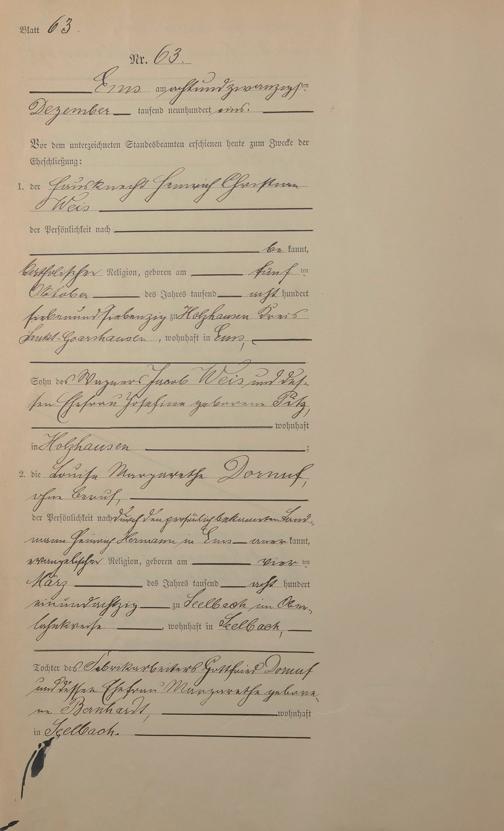 Blatt 63.
Nr. 63.
Ems am achtundzwanzigsten
Dezember tausend neunhundert eins.
Vor dem unterzeichneten Standesbeamten erschienen heute zum Zwecke der
Eheschließung:
1. der Hausknecht Heinrich Christian
Weis
der Persönlichkeit nach
be kannt,
katholischer Religion, geboren am fünf ten
Oktober des Jahres tausend acht hundert
siebenundsiebenzig zu Holzhausen Kreis
Sankt-Goarshausen, wohnhaft in Ems,
Sohn des Wagners Jacob Weis und des-
sen Ehefrau Josefine geborene
wohnhaft
in Holzhausen ;
2. die Louise Margarethe Dornuf,
ohne Beruf,
der Persönlichkeit nach durch den persönlich bekannten Land-
mann Heinrich Hermann in Ems aner kannt,
evangelischer Religion, geboren am vier ten
März des Jahres tausend acht hundert
einundachtzig zu Seelbach im Ober-
lahnkreise, wohnhaft in Seelbach,
Tochter des Fabrikarbeiters Gottfried Dornuf
und dessen Ehefrau Margarethe gebore-
ne Bernhardt, wohnhaft
in Seelbach.